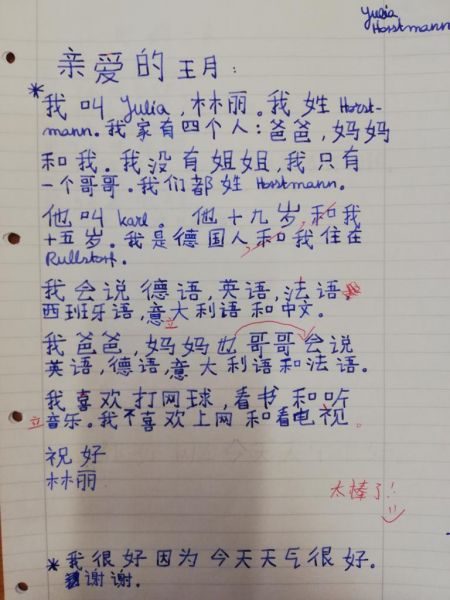 Yulia
Horstmann
亲爱的王月：
*我叫Yulia，林丽。我姓Horst-
mann。我家有四个人：爸爸，妈妈
和我。我没有姐姐，我只有
一个哥哥。我们都姓Horstmann。
他叫Karl。他十九岁和我
十五岁。我是德国人和我住在
Rullstorf。
我会说德语，英语，法语，
西班牙语，意大利语和中文。
立
我爸爸，妈妈也哥哥会说
英语，德语，意大利语和法语。
我喜欢打网球，看书和听
立音乐。我不喜欢上网和看电视。
祝好
林丽
太棒了！
*我很好因为今天天气很好。
谢谢。